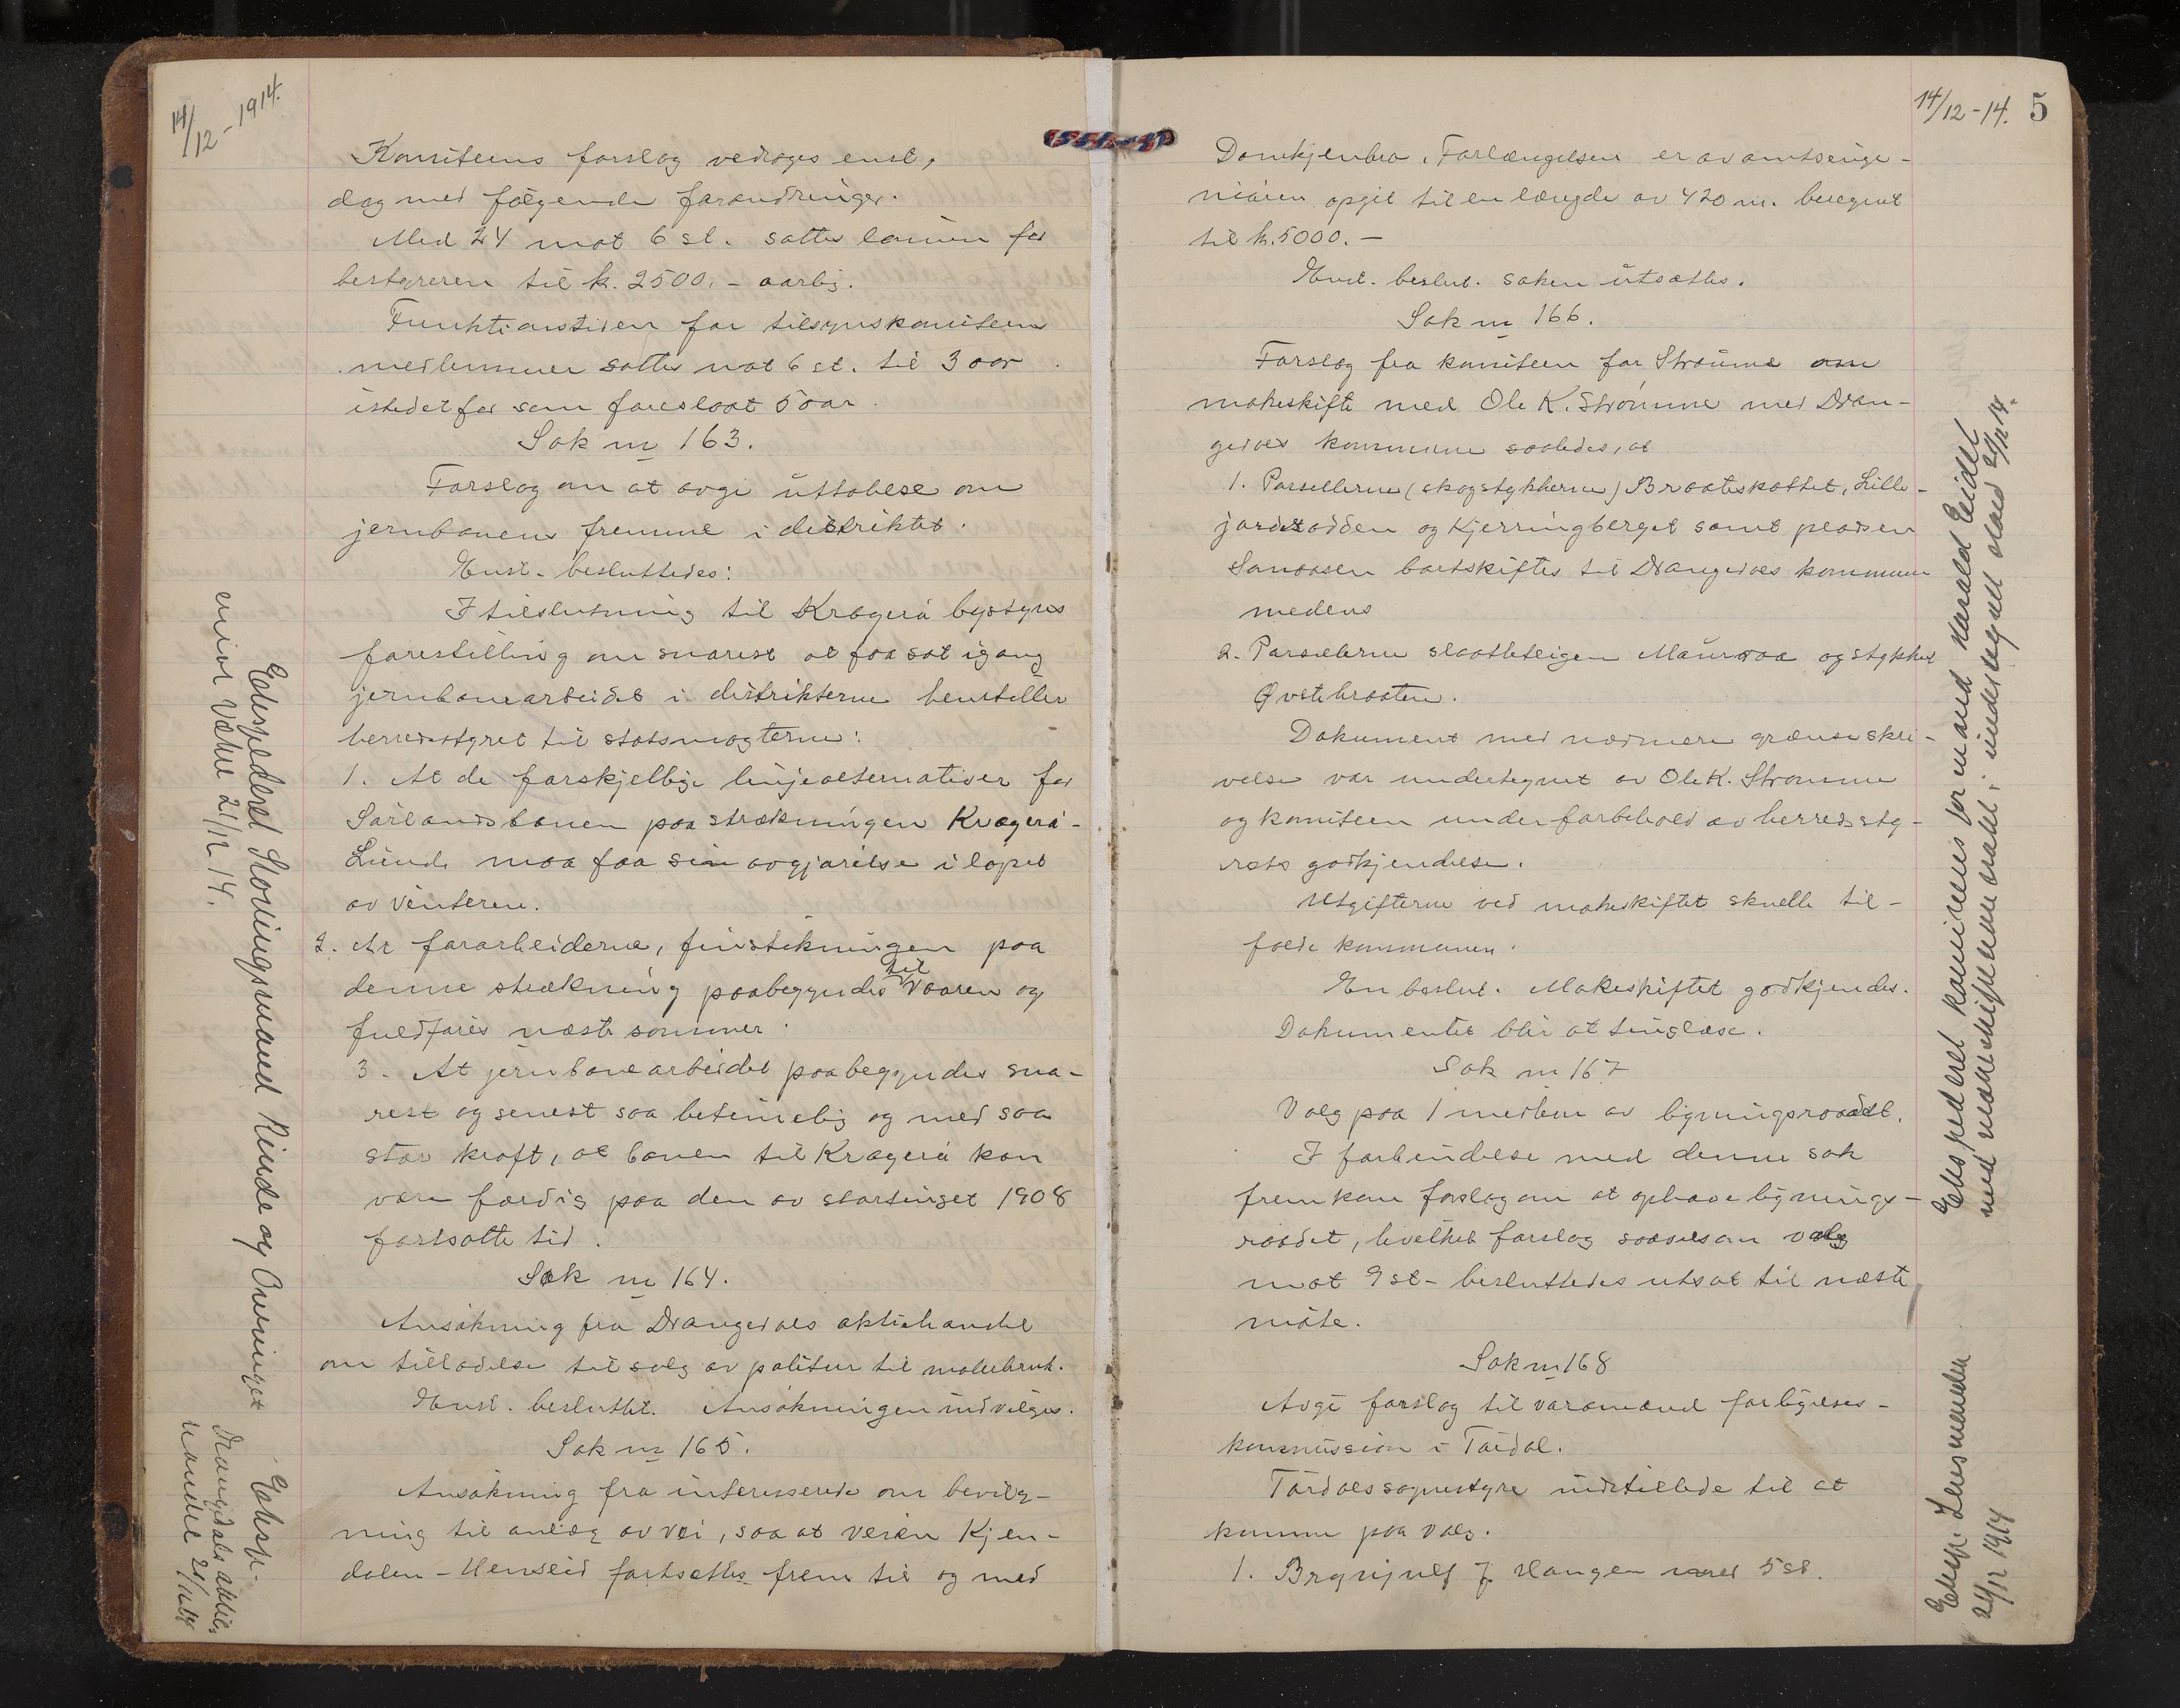 14/12-1914.
Komiteens forslag vedtoges enst,
dog med følgende forandringer.
Med 24 mot 6 st. sattes lønnen for
bestyreren til k. 2500.- aarlig.
Funktionstiden for tilsynskomiteens
medlemmer sattes mot 6 st. til 3 aar
istedetfor som foreslaat 5 aar.
Sak nr 163.
Forslag om at avgi uttalelse om
jernbanens fremme i distriktet.
Enst. besluttedes:
I tilslutning til Kragerø bystyres
forestilling om snarest at faa sat igang
jernbanearbeidet i distrikterne henstiller
herredsstyret til statsmagterne:
1. At de forskjellige linjealternativer for
Sørlandsbanen paa strækningen Kragerø-
Lunde maa faa sin avgjørelse i løpet
av vinteren.
2. At forarbeiderne, finstikningen paa
denne strækning paabegyndes til vaaren og
fuldføres næste sommer.
3. At jernbanearbeidet paabegyndes sna-
rest og senest saa betimelig og med saa
stor kraft, at banen til Kragerø kan
være færdig paa den av stortinget 1908
fastsatte tid.
Sak nr 164.
Ansøkning fra Drangedals aktiehandel
om tilladelse til salg av politur til malerbruk.
Enst. besluttet. Ansøkningen indvilges.
Sak nr 165.
Ansøkning fra interesserede om bevilg-
ning til anlæg av vei, saa at veien Kjen-
dalen - Henseid fortsættes frem til og med
Ekspederet Stortingsmand Rinde og Overinget
Væhre 21/12 14.
Eksp.
Drangedals aktie-
handel 21/12 14
14/12-14. 5
Forlængelsen er av amtsinge-
niøren opgit til en længde av 420 m. beregnet
til k. 5000.-
Enst. beslut. saken utsættes.
Sak nr 166.
Forslag fra komiteen for Strømme om
makeskifte med Ole K. Strømme med Dran-
gedals kommune saaledes, at
1. Parsellerne (skogstykkerne) Braateskottet, Lille-
jordsodden og Kjerringberget samt pladsen
Sanaasen bortskiftes til Drangedals kommune
medens
2. Parsellerne slaatteteigen Mauraa og stykket
Øvstebraaten.
Dokument med nærmere grænseskri-
velse var undertegnet av Ole K. Strømme
og komiteen under forbehold av herredssty-
rets godkjendelse.
Utgifterne ved makeskiftet skulle til-
falde kommunen.
En beslut. Makeskiftet godkjendes.
Dokumentet blir at tinglæse.
Sak nr 167
Valg paa 1 medlem av ligningsraadet.
I forbindelse med denne sak
fremkom forslag om at ophæve lignings-
raadet, hvilket forslag saavelsom valg
mot 9 st- besluttedes utsat til næste
møte.
Sak nr 168
Avgi forslag til varamænd forligelses-
kommission i Tørdal.
Tørdals sognestyre indstillede til at
komme paa valg.
1. Brynjulf J. Haugen med 5 st.
Ekspederet komiteens formand Harald Eidet
med makeskiftekontrakt i underskrevet stand 21/12 14.
Eksp. Lensmanden
21/12 1914